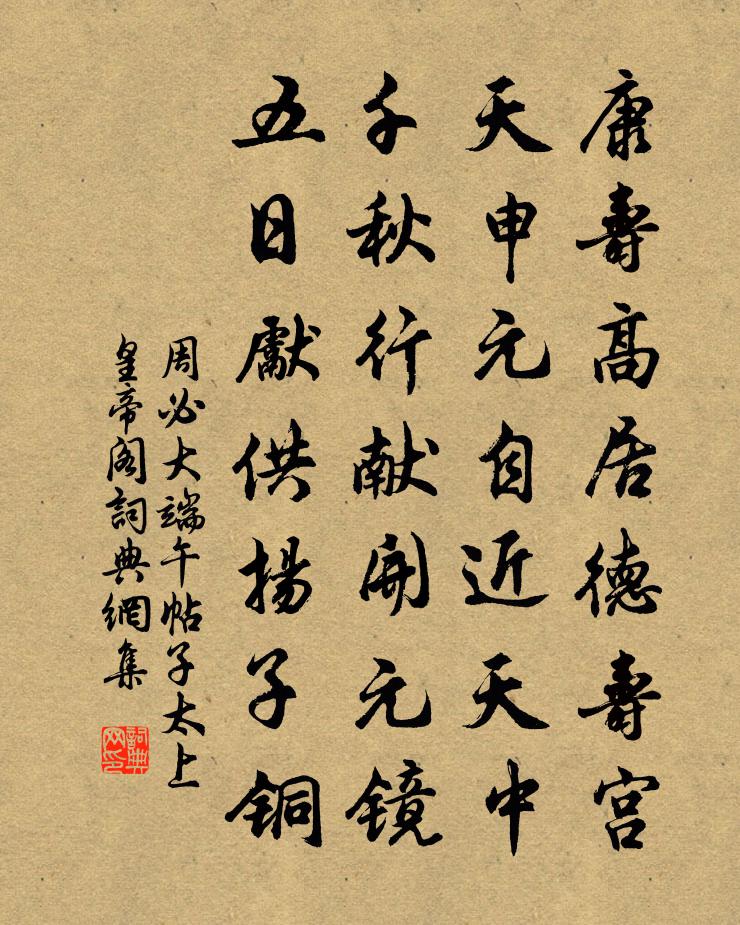 康壽高居德壽宮
天申元自近天中
千秋行献開元镜
五日獻供揚子铜
周必大端午帖子太上
皇帝阁詞典網集
詞典网印